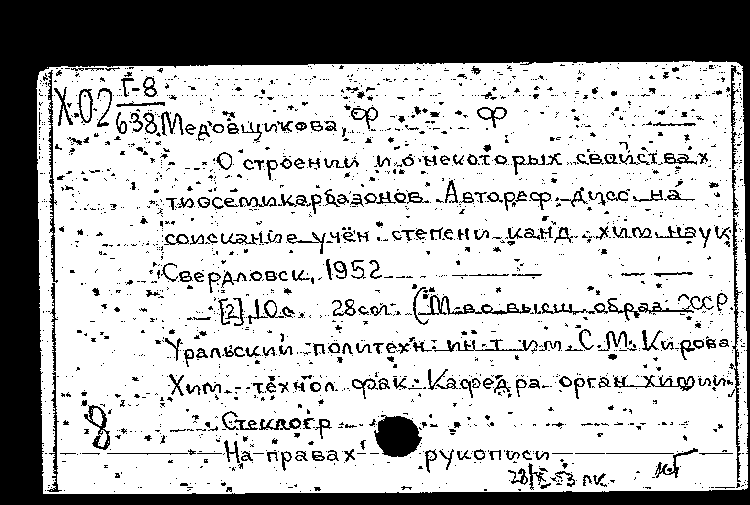 Х-02 Г-8
638 Медовщикова, Ф Ф
О строении и о некоторых свойствах
тиосемикарбазонов. Автореф. дисс. на
соискание учён. степени канд. хим. наук
Свердловск, 1952
[2], 10 с. 28 см. (М-во высш. образ. СССР.
Уральский политехн. ин-т им. С. М. Кирова.
Хим.-технол фак. Кафедра орган. химии)
Стеклогр.
На правах рукописи
8